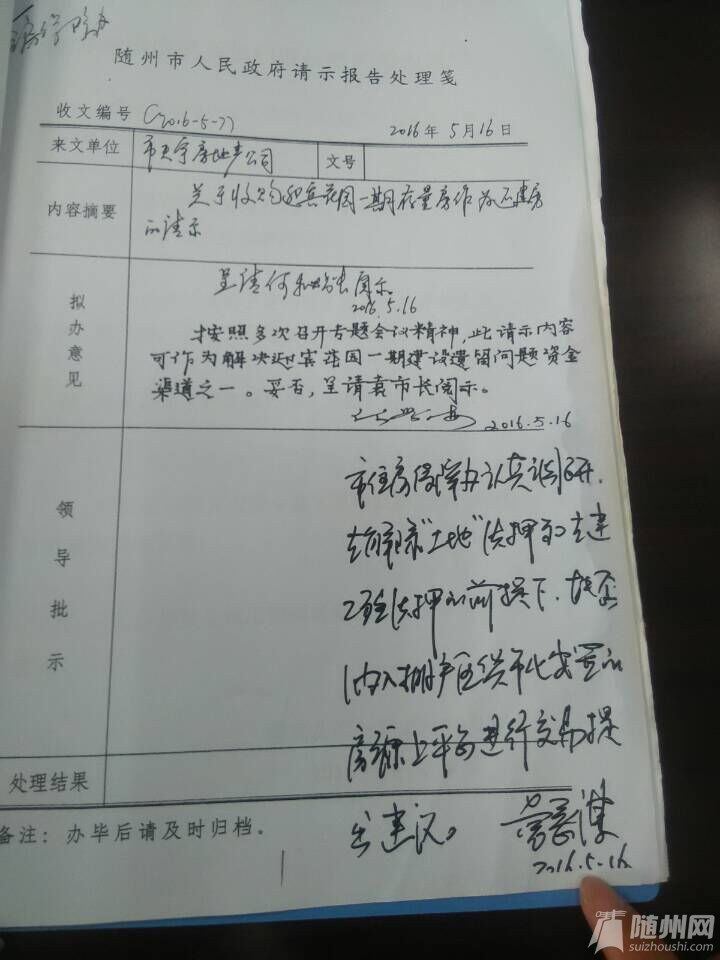 随州市人民政府请示报告处理笺
收文编号 (2016-5-77)
2016年5月16日
来文单位 市天宇房地产公司 文号
内容摘要
关于收购迎宾花园一期存量房作为还建房
的请示
拟办意见
呈请何秘书长阅示
2016.5.16
按照多次召开专题会议精神,此请示内容
可作为解决迎宾花园一期建设遗留问题资金
渠道之一。妥否,呈请袁市长阅示。
2016.5.16
领导批示
市住房保障办认真调研,
在解除"土地"抵押和在建
工程抵押的前提下,
纳入棚户区货币化安置的
房源上平台进行交易提
出建议。
2016.5.16
处理结果
备注:办毕后请及时归档。
随州网
suizhoushi.com